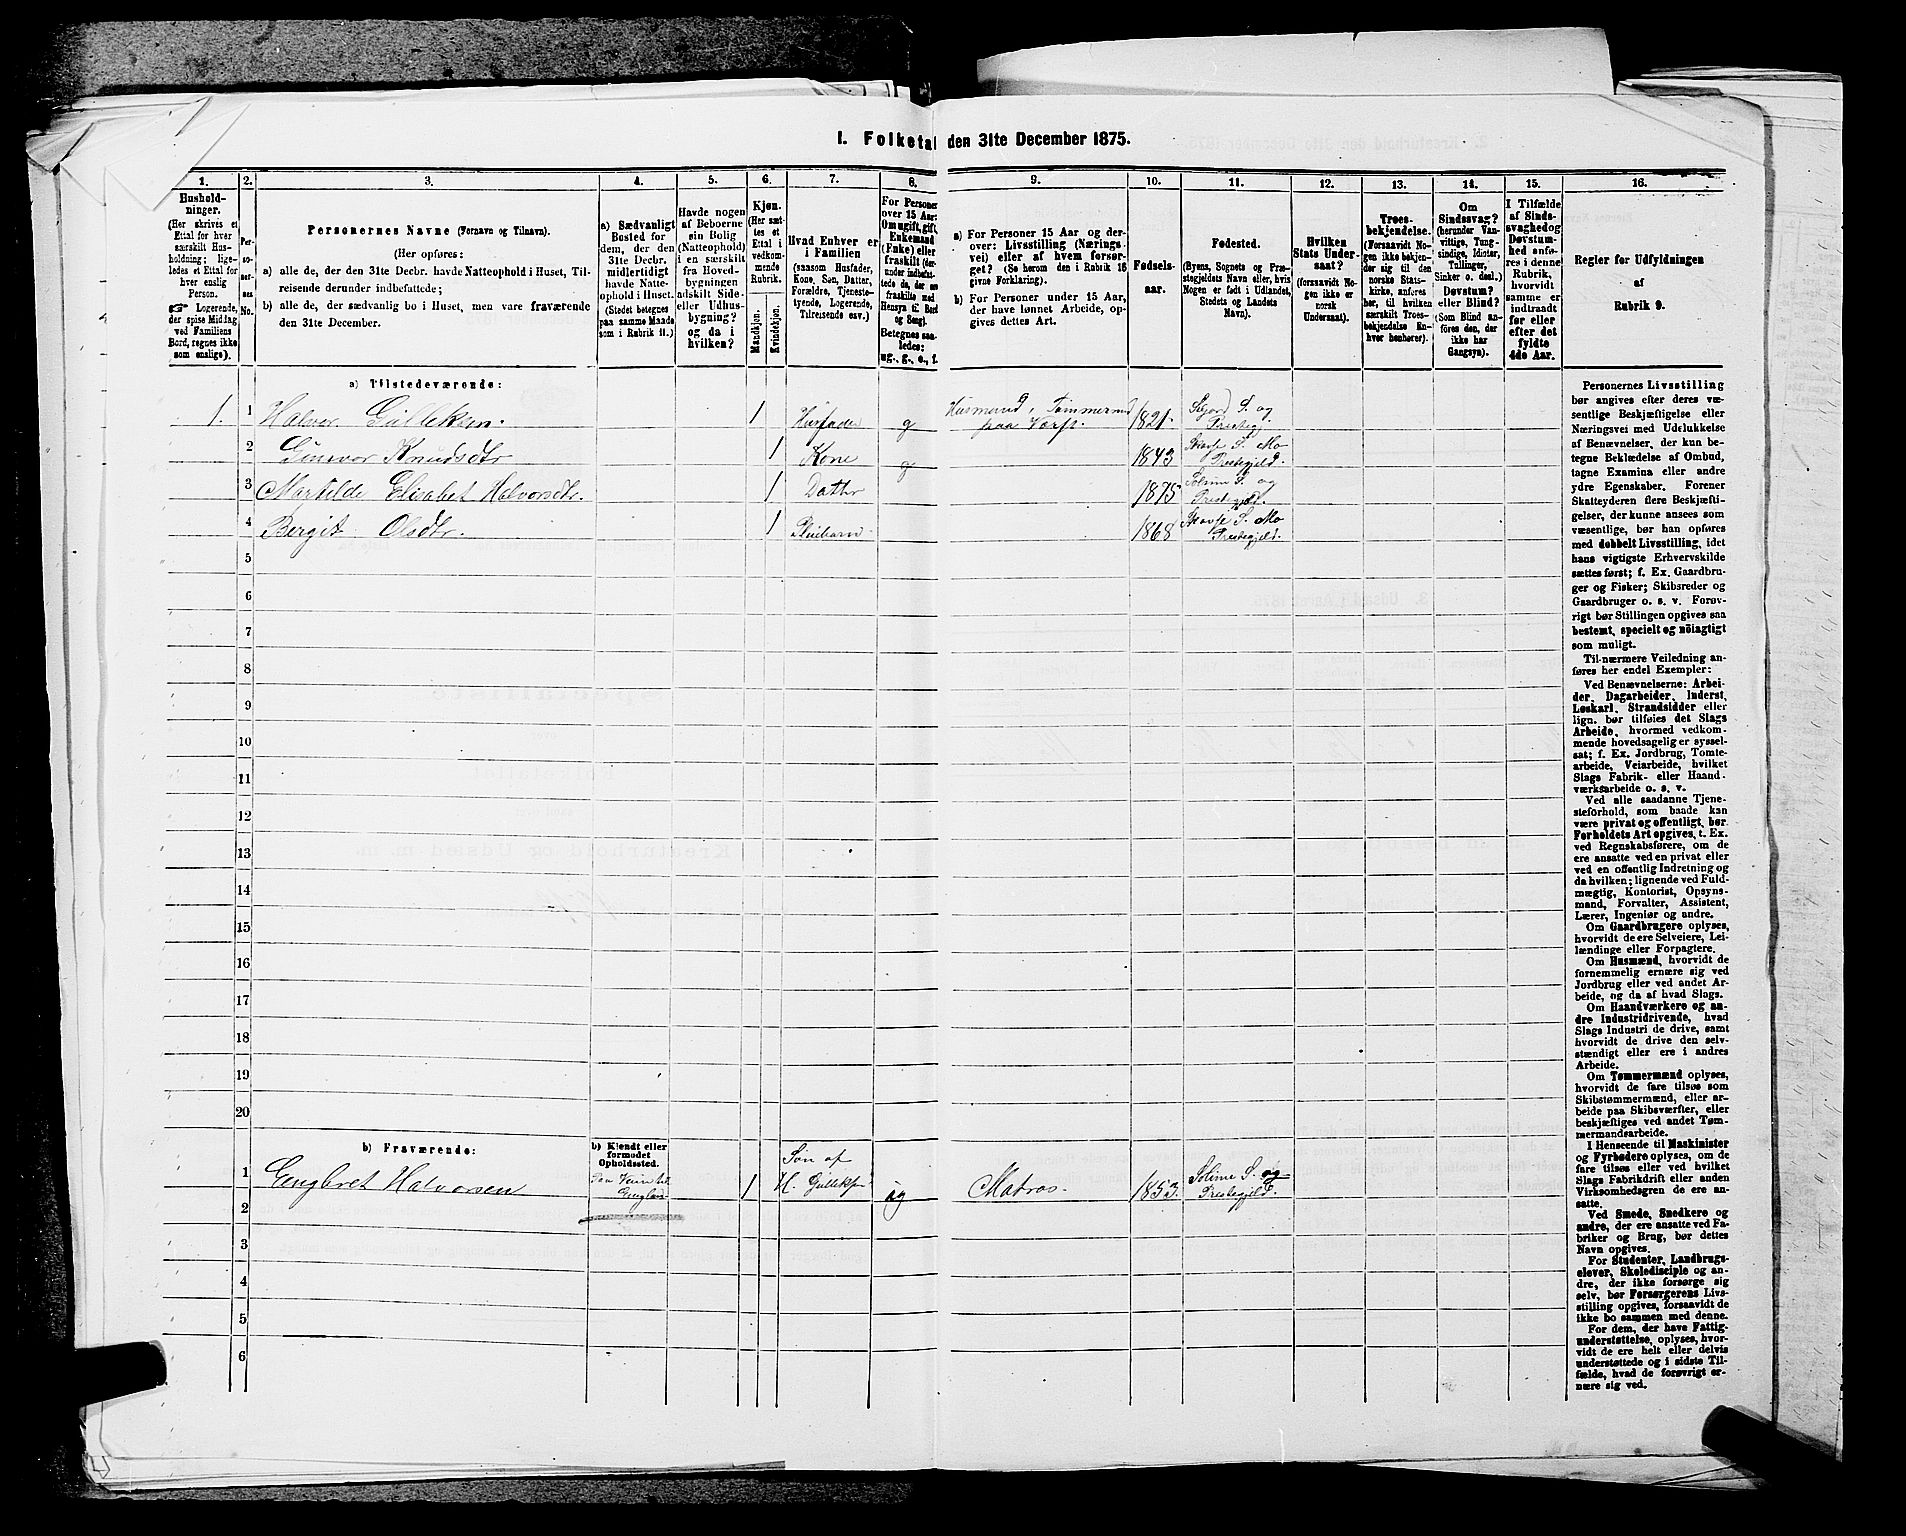 I. Folketal den 31te December 1875.
1. 2. 3. 4. 5. 6. 7. 8. 9. 10. 11. 12. 13. 14. 15. 16.
Hushold-
ninger.
(Her skrives et
Ettal for hver
særskilt Hus-
holdning; lige-
ledes et Ettal for
hver enslig
Person.
☞ Logerende,
der spise Middag
ved Familiens
Bord, regnes ikke
som enslige).
Per-
so-
ner-
nes
No.
Personernes Navne (Fornavn og Tilnavn).
(Her opføres:
a) alle de, der den 31te Decbr. havde Natteophold i Huset, Til-
reisende derunder indbefattede;
b) alle de, der sædvanlig bo i Huset, men vare fraværende
den 31te December.
a) Sædvanligt
Bosted for
dem, der den
31te Decbr.
midlertidigt
havde Natte-
ophold i Huset.
(Stedet betegnes
paa samme Maade
som i Rubrik 11.)
Havde nogen
af Beboerne
sin Bolig
(Natteophold)
i en særskilt
fra Hoved-
bygningen
adskilt Side-
eller Udhus-
bygning?
og da i
hvilken?
Kjøn.
(Her sæt-
tes et
Ettal i
vedkom-
mende
Rubrik.
Mandkjøn.
Kvindekjøn.
Hvad Enhver er
i Familien
(saasom Husfader,
Kone, Søn, Datter,
Forældre, Tjeneste-
tyende, Logerende,
Tilreisende osv.)
For Personer
over 15 Aar:
Om ugift, gift,
Enkemand
(Enke) eller
fraskilt
Betegnes saa-
ledes:
ug., g., e., f.
a) For Personer 15 Aar og der-
over: Livsstilling (Nærings-
vei) eller af hvem forsør-
get? (Se herom den i Rubrik 16
givne Forklaring).
b) For Personer under 15 Aar,
der have lønnet Arbeide, op-
gives dettes Art.
Fødsels-
aar.
Fødested.
(Byens, Sognets og Præ-
stegjeldets Navn eller, hvis
Nogen er født i Udlandet,
Stedets og Landets
Navn).
Hvilken
Stats Under-
saat?
(forsaavidt No-
gen ikke er
norsk
Undersaat).
Troes-
bekjendelse.
(Forsaavidt No-
gen ikke bekjen-
der sig til den
norske Stats-
kirke, anføres
her, til hvilken
særskilt Troes-
bekjendelse En-
hver henhører).
Om
Sindssvag?
(herunder Van-
vittige, Tung-
sindige, Idioter,
Tullinger,
Sinker o. desl.)
Døvstum?
eller Blind?
(Som Blind an-
føres den, der
ikke har
Gangsyn).
I Tilfælde
af Sinds-
svaghed og
Døvstum-
hed anfø-
res i denne
Rubrik,
hvorvidt
samme er
indtraadt
før eller
efter det
fyldte
4de Aar.
Regler for Udfyldningen
af
Rubrik 9.
a) Tilstedeværende:
1. 1 Halvor Gulleksen. 1 Husfader g Husmand, Tømmermd paa Værft. 1821. S. og Prestegj.
2 Gunvor Knudsdtr 1 Kone g 1843 Skafse S. Mo Prestegjeld.
3 Martilde Elisabet Halvorsdtr. 1 Datter 1875 Solum S. og Prestegjeld.
4 Bergit Olsdtr. 1 Pleiebarn 1868 Skafse S. Mo Prestegjeld.
5
6
7
8
9
10
11
12
13
14
15
16
17
18
19
20
b) Fraværende:
b) Kjendt eller
formodet
Opholdssted.
1 Engbret Halvorsen Paa Veien til England 1 Søn af H. Gulleksen ug Matros. 1853. Solum S. og Prestegjeld.
2
3
4
5
6
Personernes Livsstilling
bør angives efter deres væ-
sentlige Beskjæftigelse eller
Næringsvei med Udelukkelse
af Benævnelser, der kun be-
tegne Beklædelse af Ombud,
tagne Examina eller andre
ydre Egenskaber. Forener
Skatteyderen flere Beskjæfti-
gelser, der kunne ansees som
væsentlige, bør han opføres
med dobbelt Livsstilling, idet
hans vigtigste Erhvervskilde
sættes først; f. Ex. Gaardbru-
ger og Fisker; Skibsreder og
Gaardbruger o. s. v. Forøv-
rigt bør Stillingen opgives saa
bestemt, specielt og nöiagtigt
som muligt.
Til nærmere Veiledning an-
føres her endel Exempler:
Ved Benævnelserne: Arbei-
der, Dagarbeider, Inderst,
Løskarl, Strandsidder eller
lign. bør tilføies det Slags
Arbeide, hvormed vedkom-
mende hovedsagelig er syssel-
sat; f. Ex. Jordbrug, Tomte-
arbeide, Veiarbeide, hvilket
Slags Fabrik- eller Haand-
værksarbeide o. s. v.
Ved alle saadanne Tjene-
steforhold, som baade kan
være privat og offentligt, bør
Forholdets Art opgives, t. Ex.
ved Regnskabsførere, om de
ere ansatte ved en privat eller
ved en offentlig Indretning og
da hvilken; lignende ved Fuld-
mægtig, Kontorist, Opsyns-
mand, Forvalter, Assistent,
Lærer, Ingeniør og andre.
Om Gaardbrugere oplyses,
hvorvidt de ere Selveiere, Lei-
lændinge eller Forpagtere.
Om Husmænd, hvorvidt de
fornemmelig ernære sig ved
Jordbrug eller ved andet Ar-
beide, og da af hvad Slags.
Om Haandværkere og an-
dre Industridrivende, hvad
Slags Industri de drive, samt
hvorvidt de drive den selv-
stændigt eller ere i andres
Arbeide.
Om Tømmermænd oplyses,
hvorvidt de fare tilsøs som
Skibstømmermænd, eller ar-
beide paa Skibsværfter, eller
beskjæftiges ved andet Tøm-
mermandsarbeide.
I Henseende til Maskinister
og Fyrbødere oplyses, om de
fare tilsøs eller ved hvilket
Slags Fabrikdrift eller anden
Virksomhedsgren de ere an-
satte.
Ved Smede, Snedkere og
andre, der ere ansatte ved Fa-
briker og Brug, bør dettes
Navn opgives.
For Studenter, Landbrugs-
elever, Skoledisciple og an-
dre, der ikke forsørge sig
selv, bør Forsørgerens Livs-
stilling opgives, forsaavidt de
ikke bo sammen med denne.
For dem, der have Fattig-
understøttelse, oplyses, hvor-
vidt de ere helt eller delvis
understøttede og i sidste Til-
fælde, hvad de forøvrigt er-
nære sig ved.